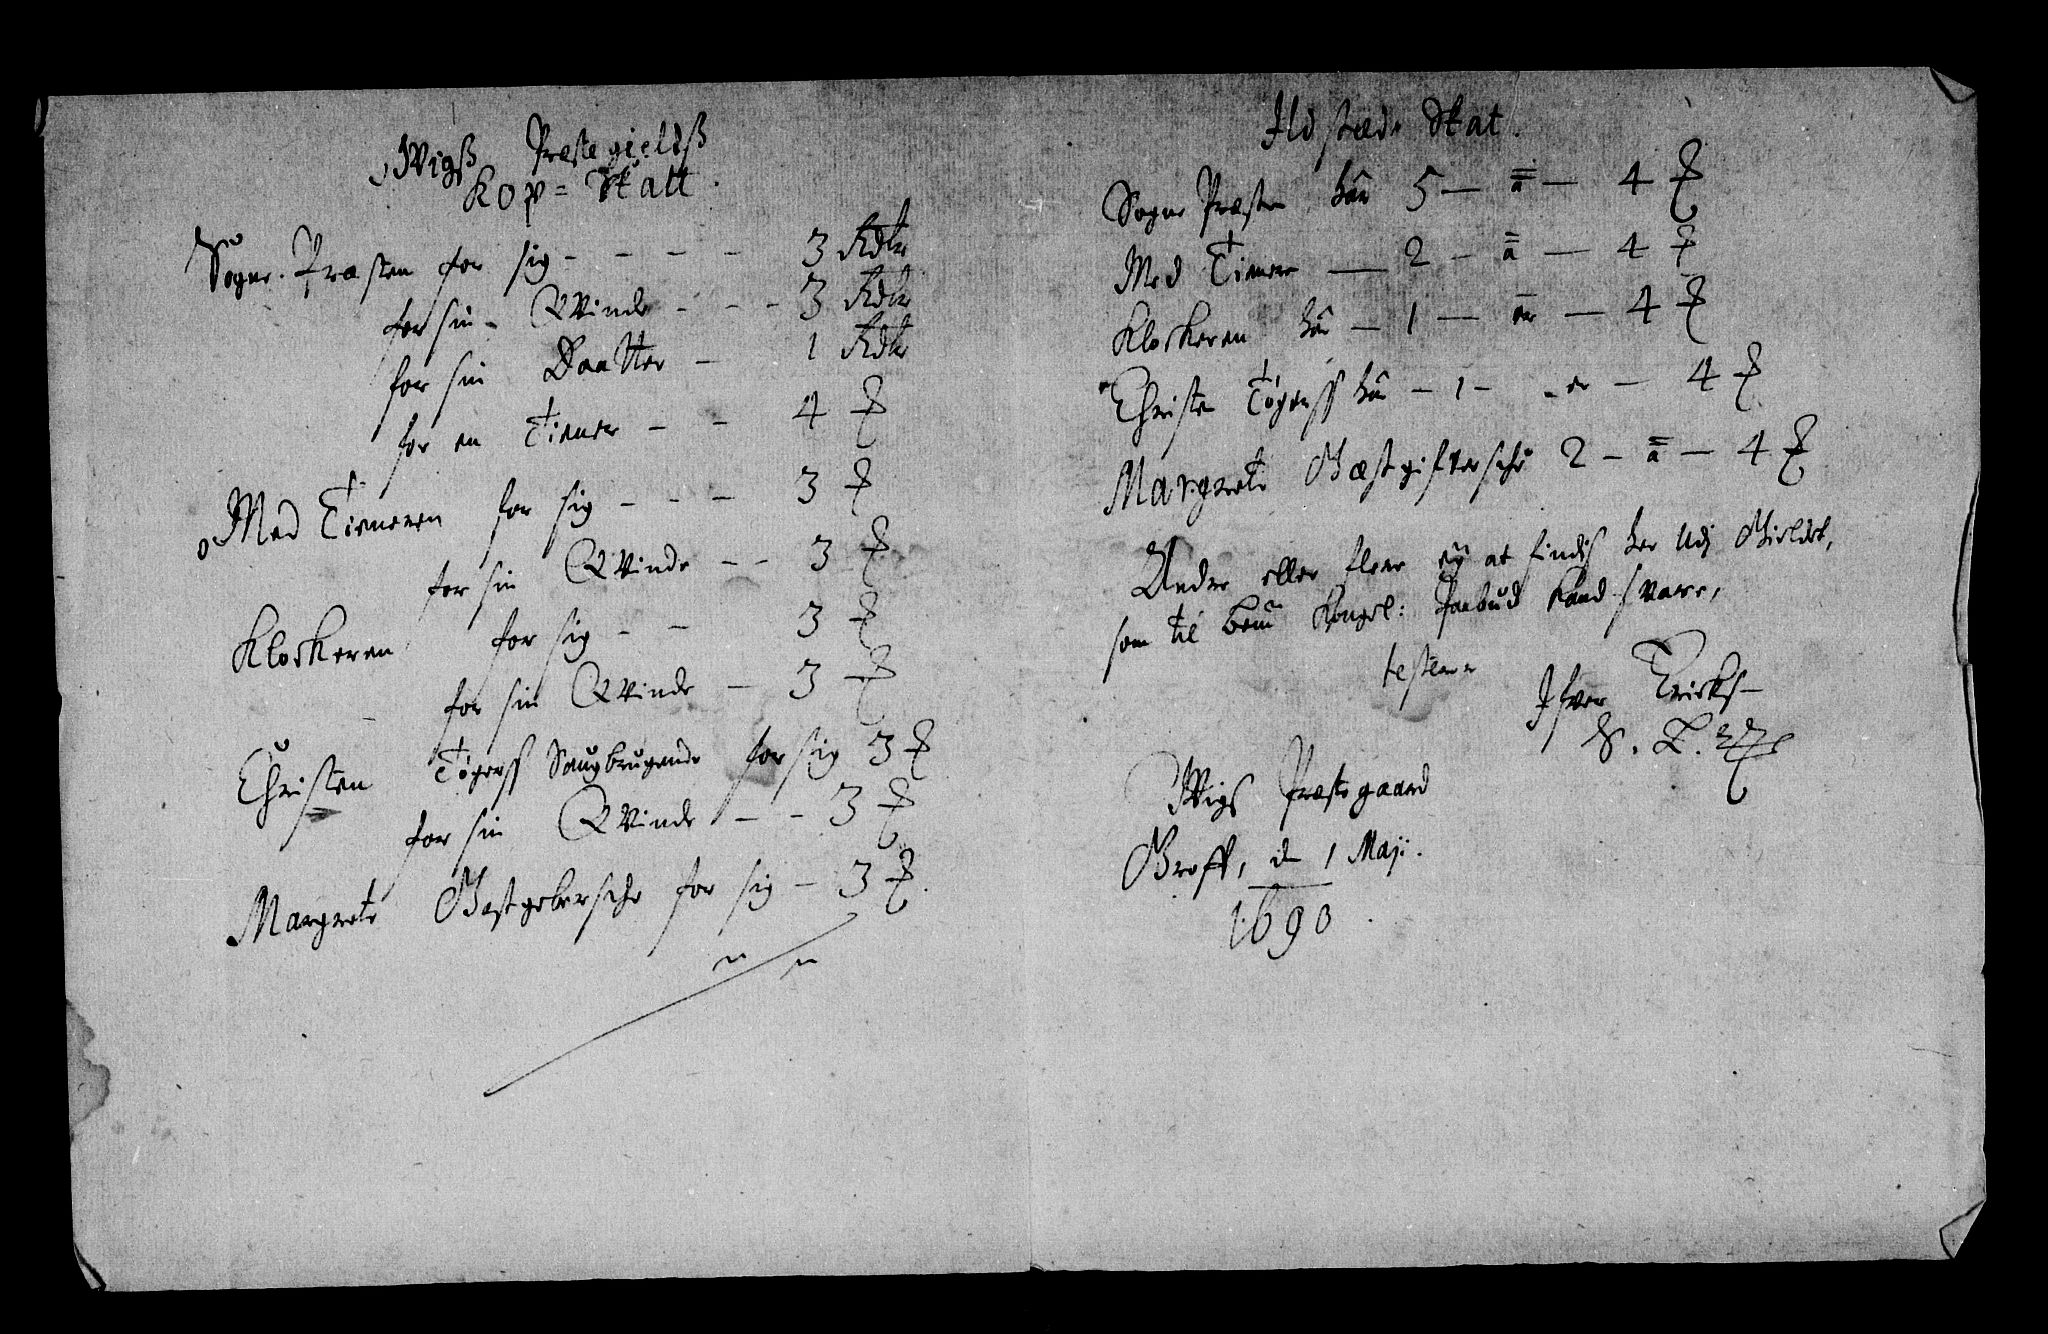 Wigß Præstegieldß
Kop= Skatt.
Sogne. Præsten for sig - - - - 3 Rdlr
for sin Qvinde - - - 3 Rdlr
for sin Daatter - 1 Rdlr
for en Tiener - - 4 ß
Med Tieneren for sig - - - 3 ß
for sin Qvinde - - 3 ß
Klockeren for sig - - 3 ß
for sin Qvinde - 3 ß
Christen Tøgerss Saugbrugende for sig 3 ß
for sin Qvinde - - 3 ß
Margrete Gestgebersche for sig - 3 ß.
Ildstæde Skat.
Sogne Præsten har 5 — a — 4 ß
Med Tiener — 2 - a — 4 ß
Klockeren har — 1 — er — 4 ß
Christen Tøgerss har — 1 — er — 4 ß
Margrete Gæstgifversche 2 — a — 4 ß
Andre eller fleer ey at findis her Udj Gieldet,
som til Kongel: Paabud kand svare,
tester
Ifver Ericks-
Wigs Præstegaard
d 1 Maji.
1690.